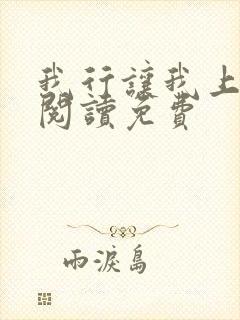 我行讓我上
閱讀免費
雨淚島